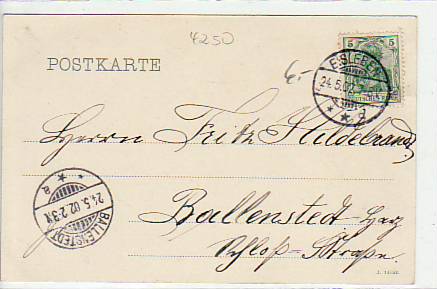 4250
POSTKARTE
5 5
EISLEBEN
24.5.02
Herrn Fritz Hildebrandt
Ballenstedt-Harz
Schloß-Straße.
BALLENSTEDT
24.5.02 2-3N
a